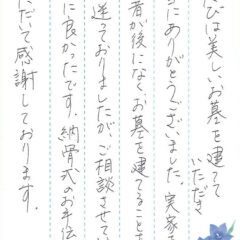 びは美しいお墓を建てて
いただき
にありがとうございました。実家
者が後になく、お墓を建てること
迷っておりましたが、ご相談させて
に良かったです。納骨式のお手伝
だいて感謝しております。